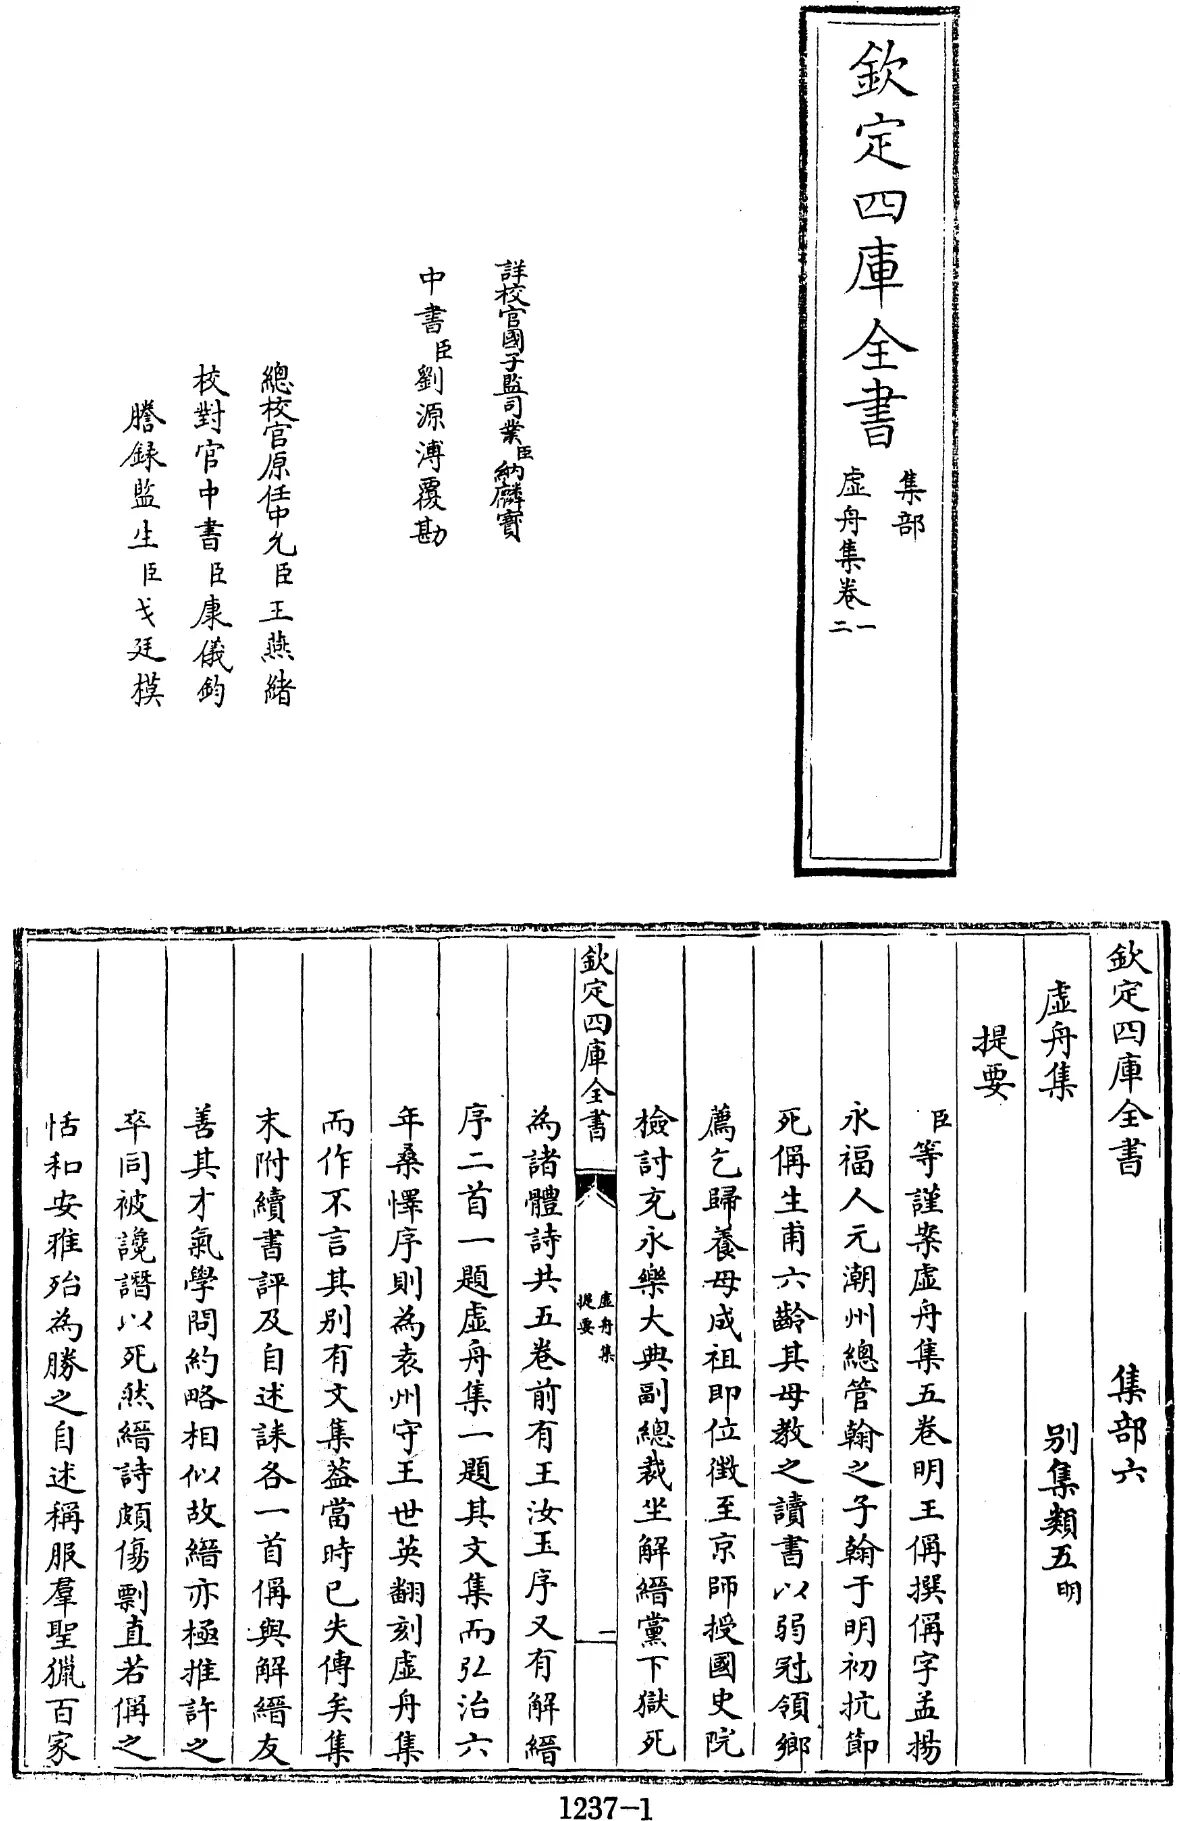 欽定四庫全書
集部
虛舟集卷一
二
詳校官國子監司業臣納麟寳
中書臣劉源溥覆勘
總校官原任中允臣王燕緒
校對官中書臣康儀鈞
謄録監生臣戈廷模
欽定四庫全書 集部六
虛舟集 别集類五明
提要
臣等謹案虛舟集五卷明王偁撰偁字孟揚
永福人元潮州總管翰之子翰于明初抗節
死偁生甫六齡其母教之讀書以弱冠領鄉
薦乞歸養母成祖即位徵至京師授國史院
檢討充永樂大典副總裁坐解縉黨下獄死
欽定四庫全書
虛舟集
提要
一
為諸體詩共五卷前有王汝玉序又有解縉
序二首一題虛舟集一題其文集而弘治六
年桑懌序則為袁州守王世英翻刻虛舟集
而作不言其别有文集葢當時已失傳矣集
末附續書評及自述誄各一首偁與解縉友
善其才氣學問約略相似故縉亦極推許之
卒同被讒譖以死然縉詩頗傷剽直若偁之
恬和安雅殆為勝之自述稱服羣聖獵百家
1237-1